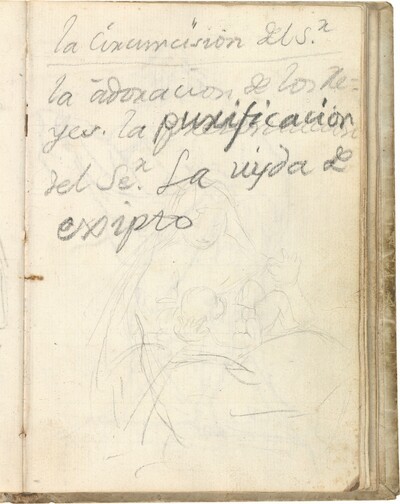 la Circuncision del S.r
la adoracion de los Re=
yes. la purificacion
del Se.r La uyda de
exipto